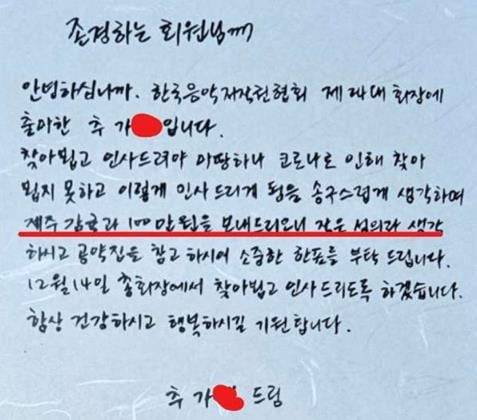 존경하는 회원님께
안녕하십니까. 한국음악저작권협회 제 24대 회장에
출마한 추 가 입니다.
찾아뵙고 인사드려야 마땅하나 코로나로 인해 찾아
뵙지 못하고 이렇게 인사 드리게 됨을 송구스럽게 생각하며
제주 감귤과 100만원을 보내드리오니 작은 성의라 생각
하시고 공약집을 참고 하시어 소중한 한표를 부탁 드립니다.
12월 14일 총회장에서 찾아뵙고 인사드리도록 하겠습니다.
항상 건강하시고 행복하시길 기원합니다.
추 가 드림